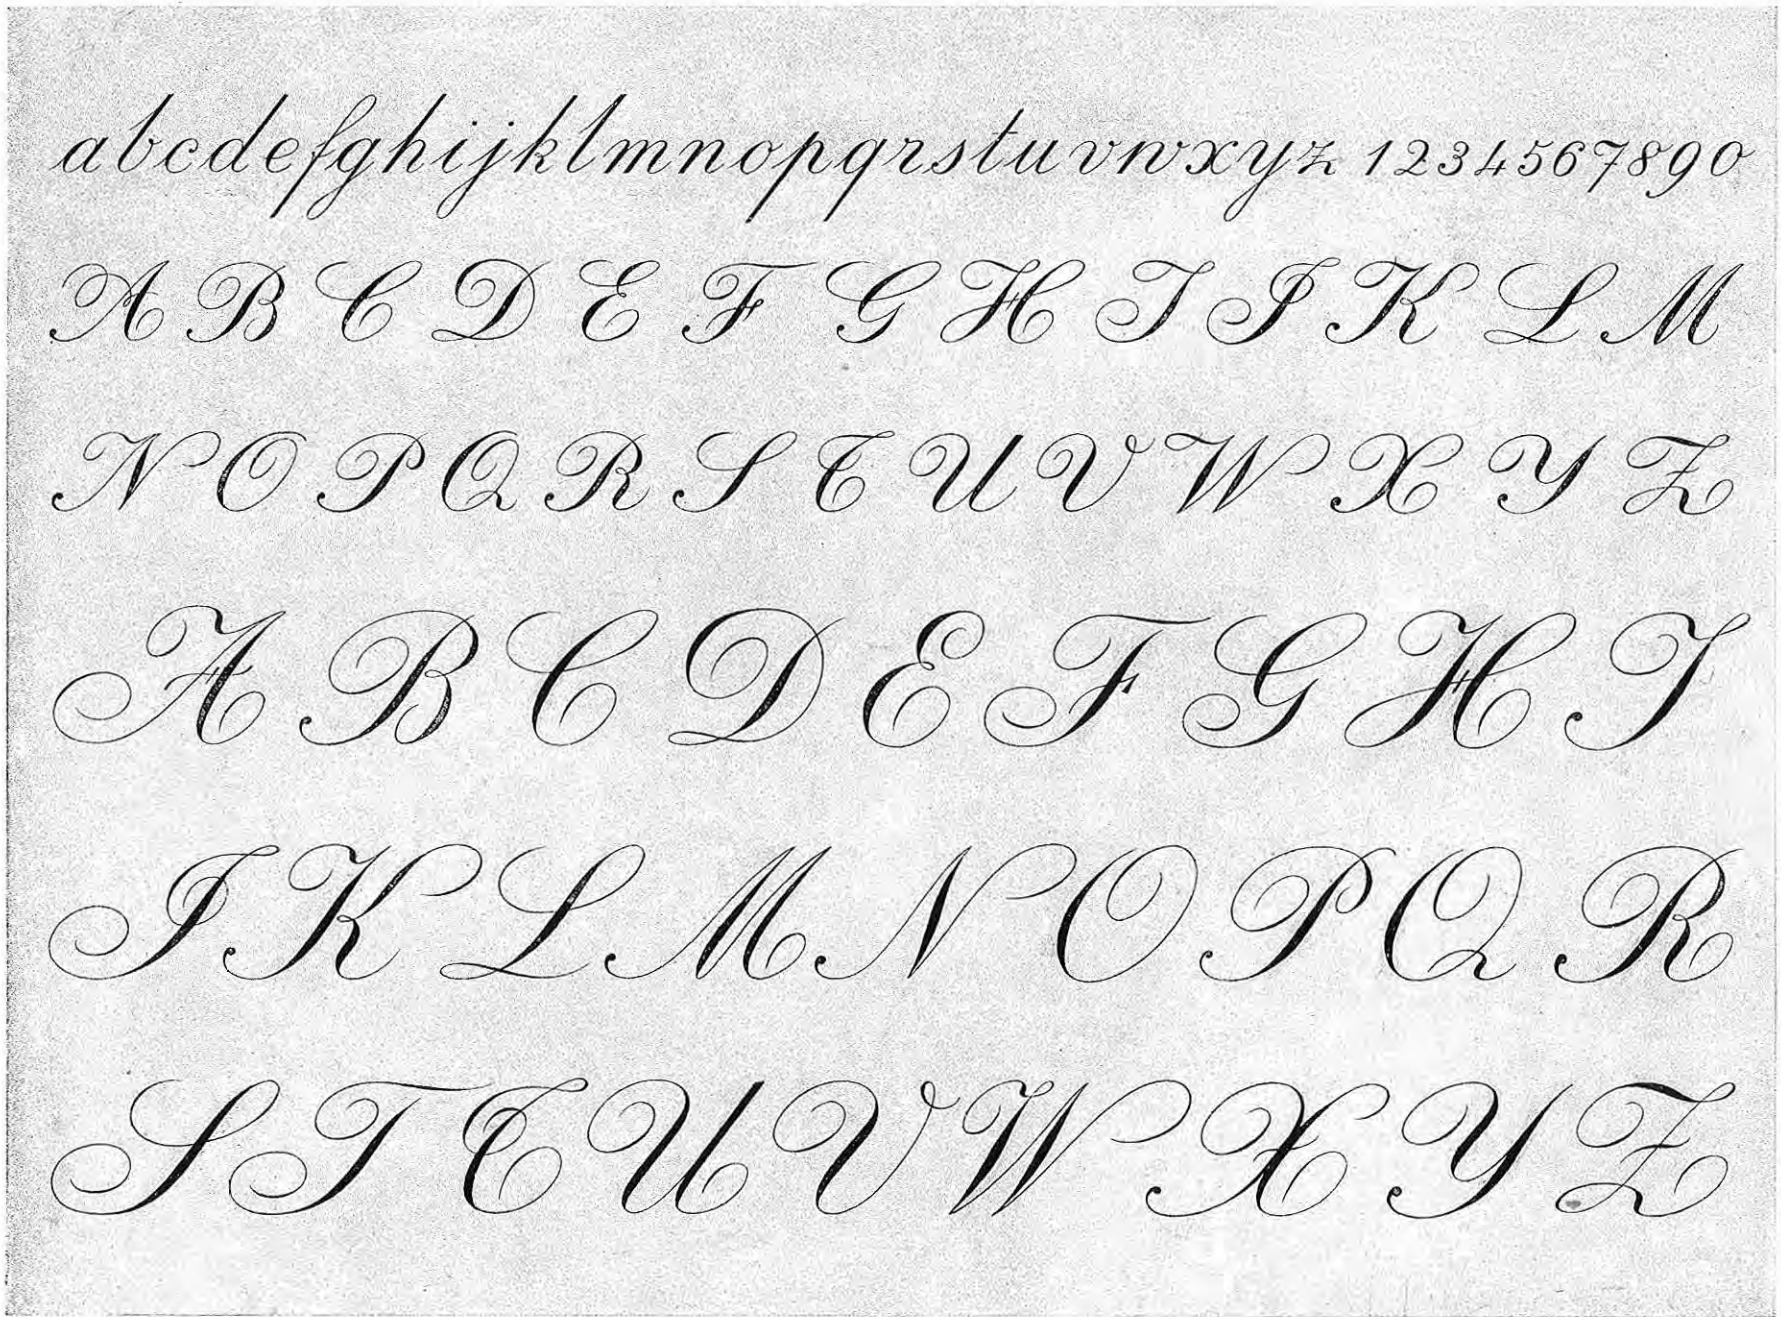 abcdefghijklmnopqrstuvwxyz 1234567890
A B C D E F G H I J K L M
N O P Q R S T U V W X Y Z
A B C D E F G H I
J K L M N O P Q R
S T T U V W X Y Z